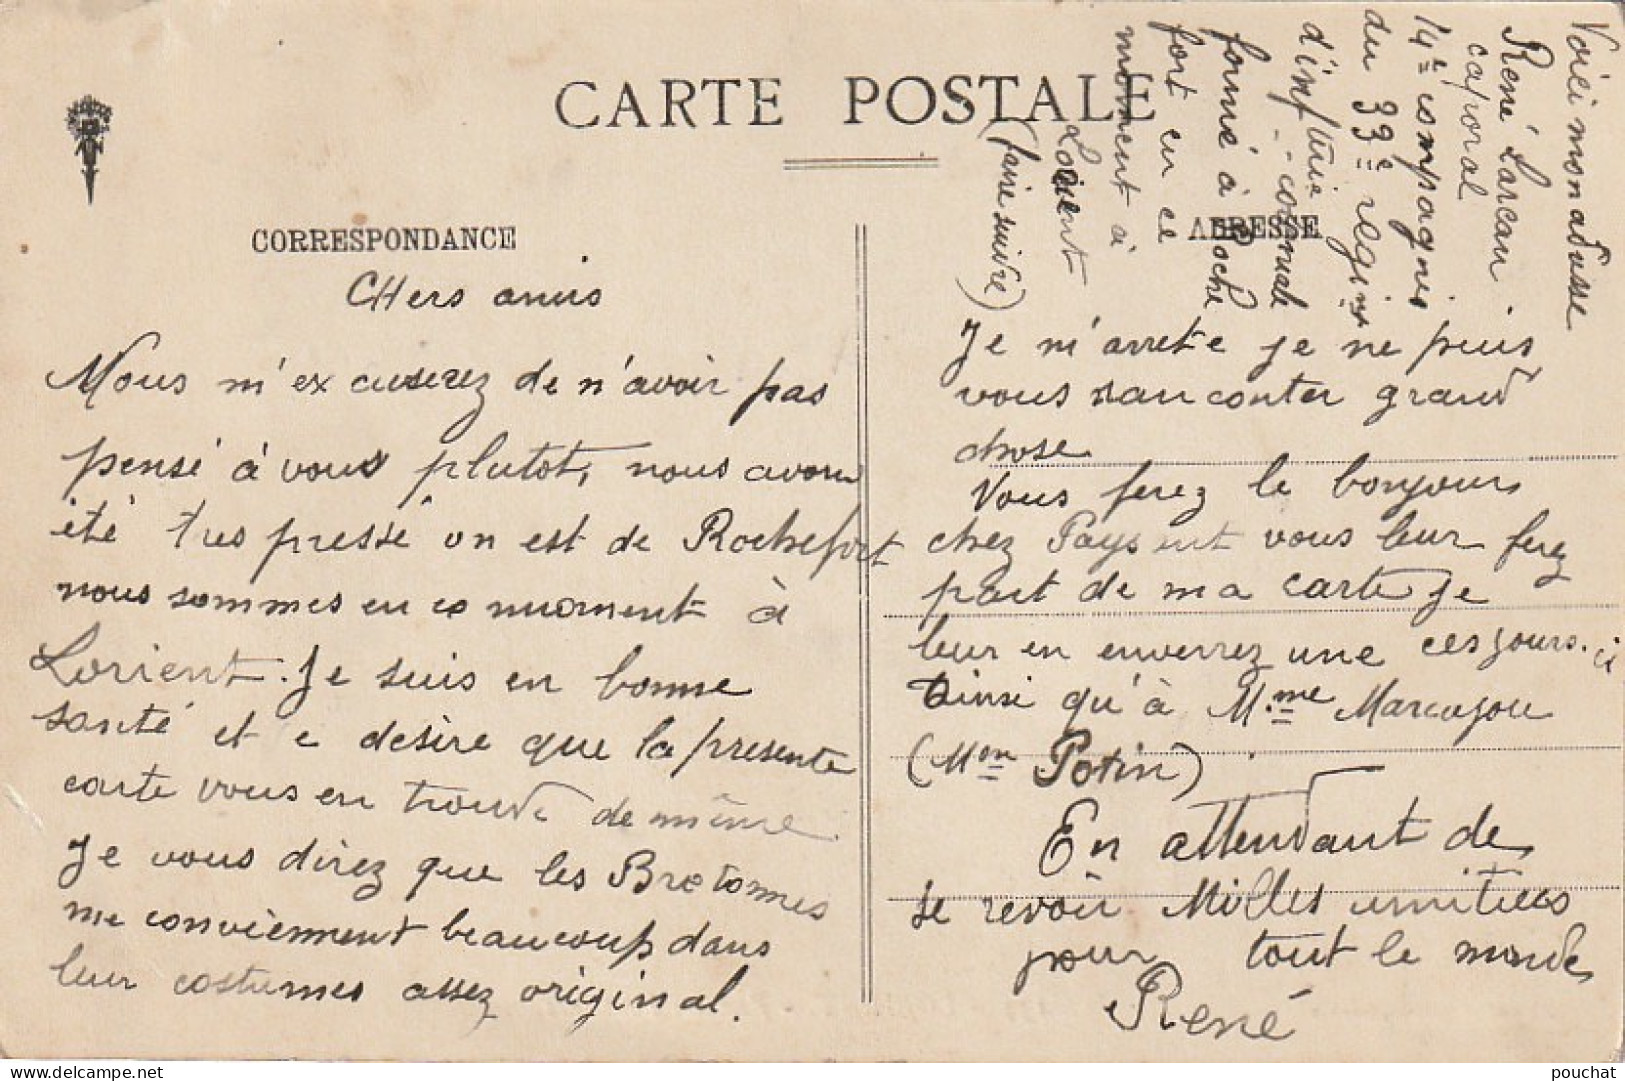 CARTE POSTALE
CORRESPONDANCE
CHers amis
Vous m'excuserez de n'avoir pas
pensé à vous plutot, nous avons
été tres pressé on est de Rochefort
nous sommes en ce moment à
Lorient. Je suis en bonne
santé et e désire que la presente
carte vous en trouve de même
Je vous direz que les Bretonnes
me conviennent beaucoup dans
leur costumes assez original.
ADRESSE
Je m'arrete je ne puis
vous rauconter grand
chose
Vous ferez le bonjour
chez Paysant vous leur ferez
part de ma carte je
leur en enverrez une ces jours. ci
Ainsi qu'à M.me
(Mon Potin)
En attendant de
se revoir Milles amitiees
pour tout le monde
René
Voici mon adresse
René Larceau
caporal
14e compagnie
du 33e regimt
d'infterie
coloniale
formé à Roche
fort en ce
moment à
Lorient
(faire suivre)
pouchat